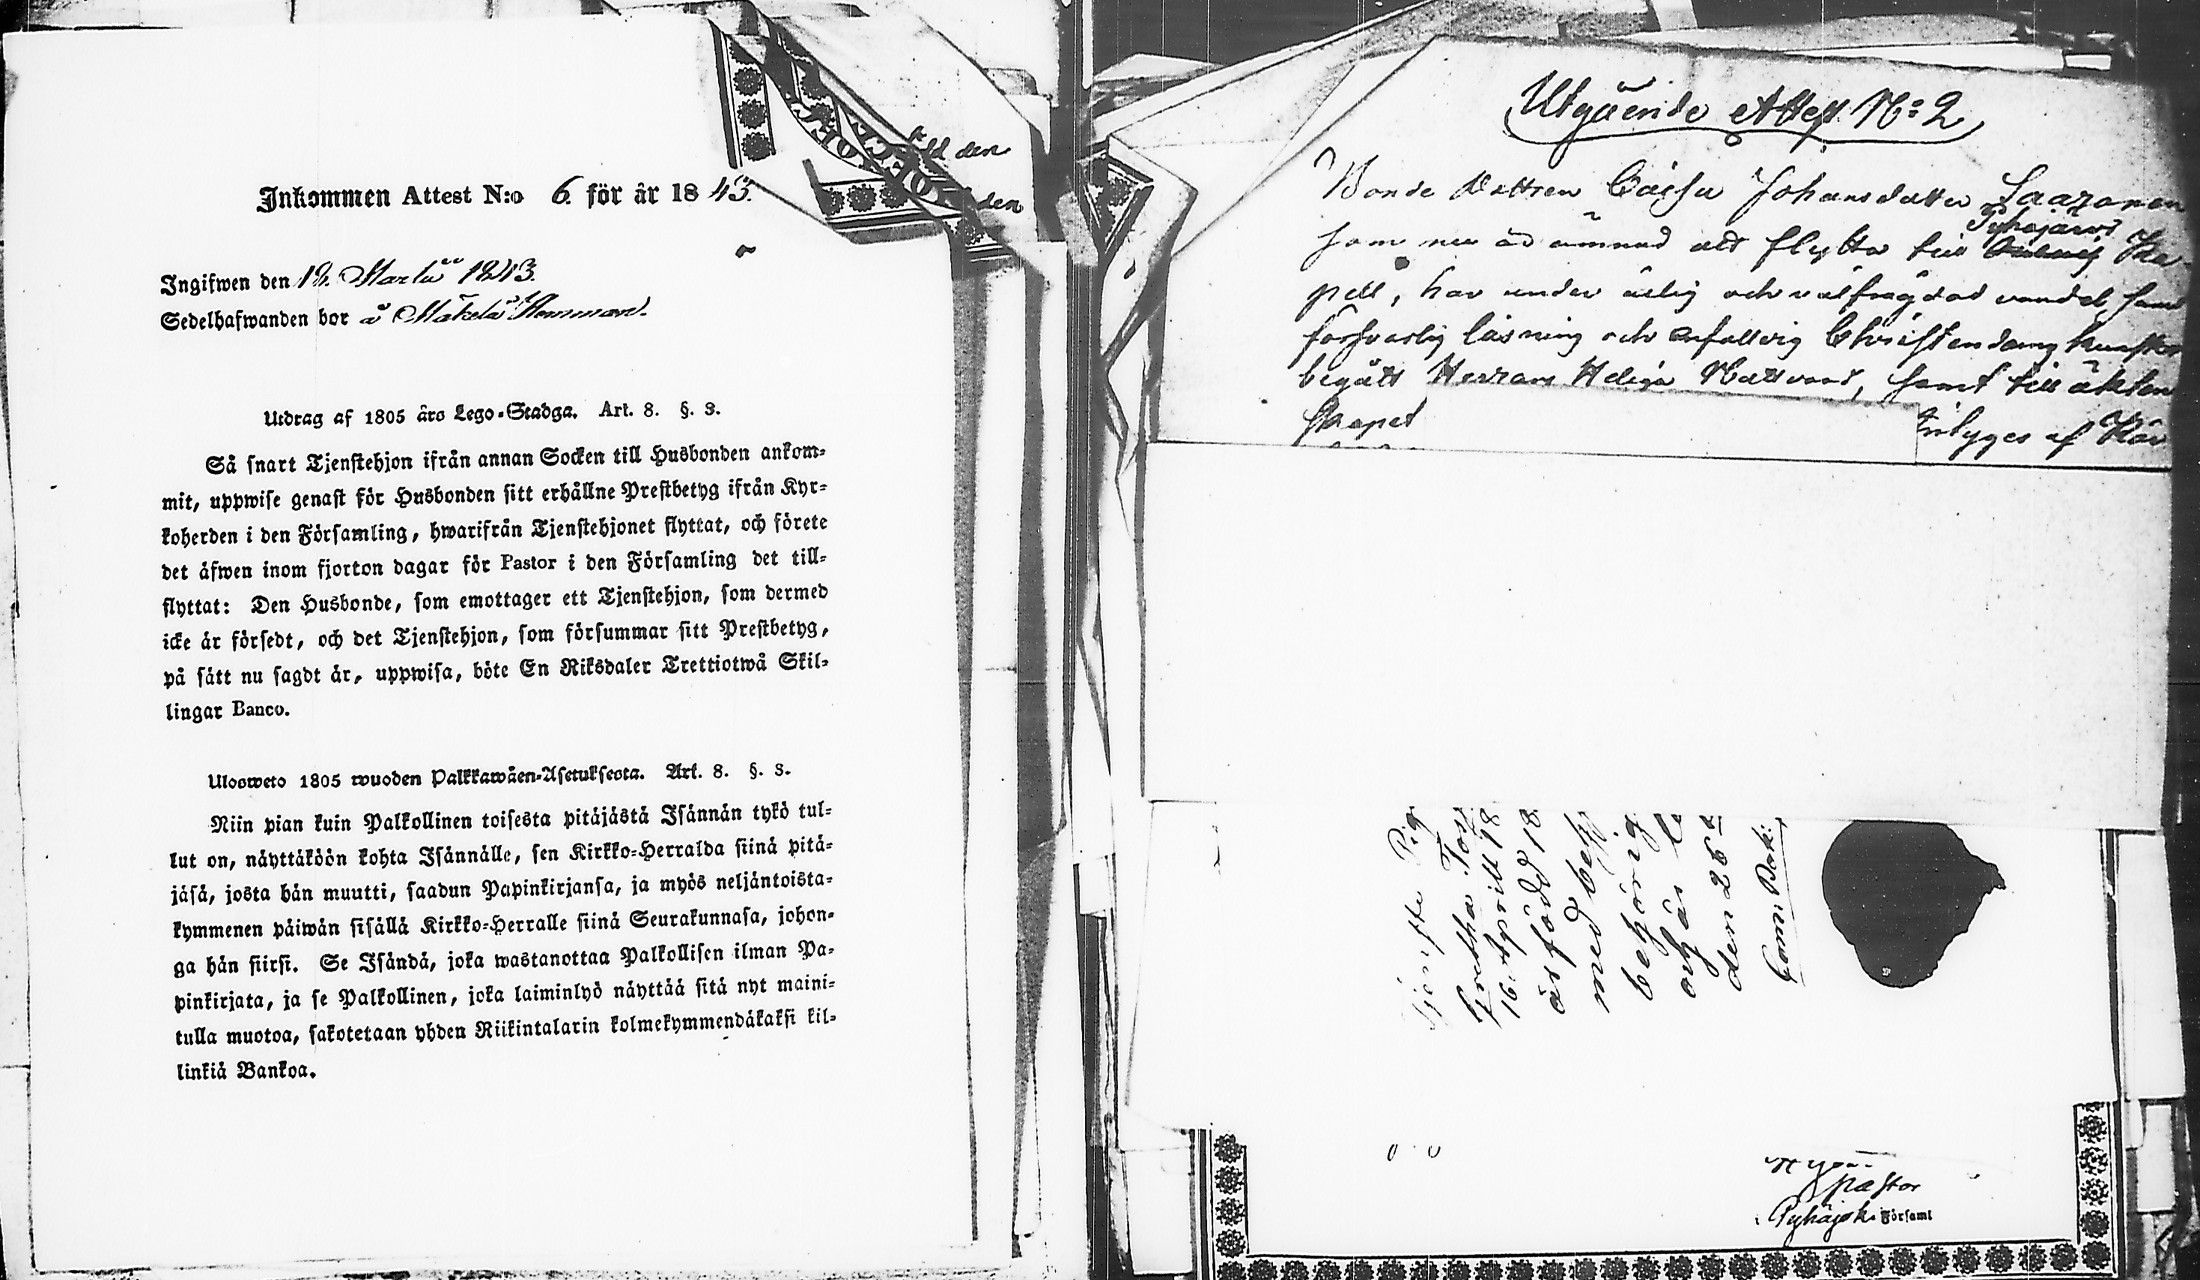 Inkommen Attest N:o 6. för år 1843.
Ingifwen den 12. Martii 1843.
Sedelhafwanden bor å Mäkelä Hemman.
Utdrag af 1805 års Lego-Stadga. Art. 8. §. 3.
Så snart Tjenstehjon ifrån annan Socken till Husbonden ankom-
mit, uppwise genast för Husbonden sitt erhållne Prestbetyg ifrån Kyr-
koherden i den Församling, hwarifrån Tjenstehjonet flyttat, och förete
det äfwen inom fjorton dagar för Pastor i den Församling det till-
flyttat: Den Husbonde, som emottager ett Tjenstehjon, som dermed
icke är försedt, och det Tjenstehjon, som försummar sitt Prestbetyg,
på sätt nu sagdt är, uppwisa, böte En Riksdaler Trettiotwå Skil-
lingar Banco.
Ulosweto 1805 wuoden Palkkawäen-Asetuksesta. Art. 8. §. 3.
Niin pian kuin Palkollinen toisesta pitäjästä Isännän tykö tul-
lut on, näyttäköön kohta Isännälle, sen Kirkko-Herralda siinä pitä-
jäsä, josta hän muutti, saadun Papinkirjansa, ja myös neljäntoista-
kymmenen päiwän sisällä Kirkko-Herralle siinä Seurakunnasa, johon-
ga hän siirsi. Se Isändä, joka wastanottaa Palkollisen ilman Pa-
pinkirjata, ja se Palkollinen, joka laiminlyö näyttää sitä nyt maini-
tulla muotoa, sakotetaan yhden Riikintalarin kolmekymmendäkaksi kil-
linkiä Bankoa.
den
den
Utgående Attest No 2
Bonde Dottren Caisa Johansdotter Saaranen
Pyhäjärvi
som nu är ämnad att flytta till Ka-
pell, har under ärlig och välfrägdad vandel samt
försvarlig läsning och enfaldig Christendoms kunskap
begått Herrans Heliga Nattvard, samt till äkten
skapet
intyges af
Tjenste Pig
Gretha
16. April 18
är född 18
med
behörig
och
den 26
Pastor
Pyhäjoki Församl